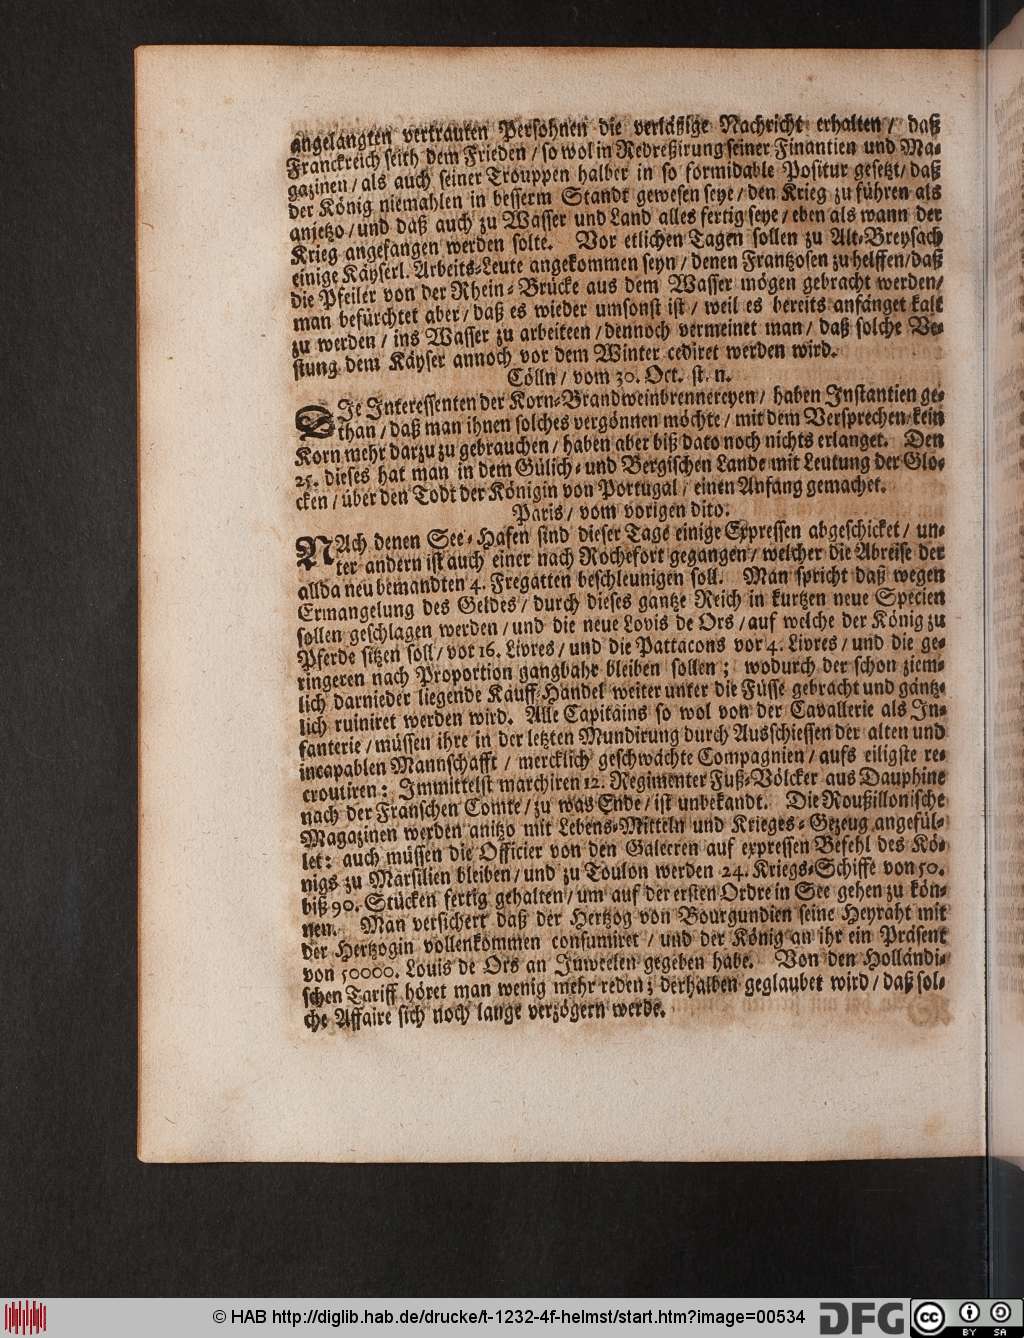 angelangten vertrauten Persohnen die verläßige Nachricht erhalten / daß
Franckreich seith dem Frieden / so wol in Redreßirung seiner Finantien und Ma-
gazinen / als auch seiner Trouppen halber in so formidable Positur gesetzt / daß
der König niemahlen in besserm Standt gewesen seye / den Krieg zu führen als
anjetzo / und daß auch zu Wasser und Land alles fertig seye / eben als wann der
Krieg angefangen werden solte. Vor etlichen Tagen sollen zu Alt-Breysach
einige Käyserl. Arbeits-Leute angekommen seyn / denen Frantzosen zu helffen / daß
die Pfeiler von der Rhein-Brücke aus dem Wasser mögen gebracht werden /
man befürchtet aber / daß es wieder umsonst ist / weil es bereits anfänget kalt
zu werden / ins Wasser zu arbeiteen / dennoch vermeinet man / daß solche Ve-
stung dem Käyser annoch vor dem Winter cediret werden wird.
Cölln / vom 30. Oct. st. n.
DIe Interessenten der Korn-Brandweinbrennereyen / haben Instantien ge-
than / daß man ihnen solches vergönnen möchte / mit dem Versprechen / kein
Korn mehr darzu zu gebrauchen / haben aber biß dato noch nichts erlanget. Den
25. dieses hat man in dem Gülich- und Bergischen Lande mit Leutung der Glo-
cken / über den Todt der Königin von Portugal / einen Anfang gemachet.
Paris / vom vorigen dito.
NAch denen See-Hafen sind dieser Tage einige Expressen abgeschicket / un-
ter andern ist auch einer nach Rochefort gegangen / welcher die Abreise der
allda neu bemandten 4. Fregatten beschleunigen soll. Man spricht daß wegen
Ermangelung des Geldes / durch dieses gantze Reich in kurtzen neue Specien
sollen geschlagen werden / und die neue Lovis de Ors / auf welche der König zu
Pferde sitzen soll / vor 16. Livres / und die Pattacons vor 4. Livres / und die ge-
ringeren nach Proportion gangbahr bleiben sollen ; wodurch der schon ziem-
lich darnieder liegende Kauff-Handel weiter unter die Füsse gebracht und gäntz-
lich ruiniret werden wird. Alle Capitäins so wol von der Cavallerie als In-
fanterie / müssen ihre in der letzten Mundirung durch Ausschiessen der alten und
incapablen Mannschafft / mercklich geschwächte Compagnien / aufs eiligste re-
croutiren : Immittelst marchiren 12. Regimenter Fuß-Völcker aus Dauphine
nach der Franschen Comte / zu was Ende / ist unbekandt. Die Roußillonische
Magazinen werden anitzo mit Lebens-Mitteln und Krieges-Gezeug angefül-
let : auch müssen die Officier von den Galeeren auf expressen Befehl des Kö-
nigs zu Marsilien bleiben / und zu Toulon werden 24. Kriegs-Schiffe von 50.
biß 90. Stücken fertig gehalten / um auf der ersten Ordre in See gehen zu kön-
nen. Man versichert daß der Hertzog von Bourgundien seine Heyraht mit
der Hertzogin vollenkommen consumiret / und der König an ihr ein Präsent
von 50000. Louis de Ors an Juweelen gegeben habe. Von den Holländi-
schen Tariff höret man wenig mehr reden ; derhalben geglaubet wird / daß sol-
che Affaire sich noch lange verzögern werde.
© HAB http://diglib.hab.de/drucke/t-1232-4f-helmst/start.htm?image=00534
DFG
cc BY SA